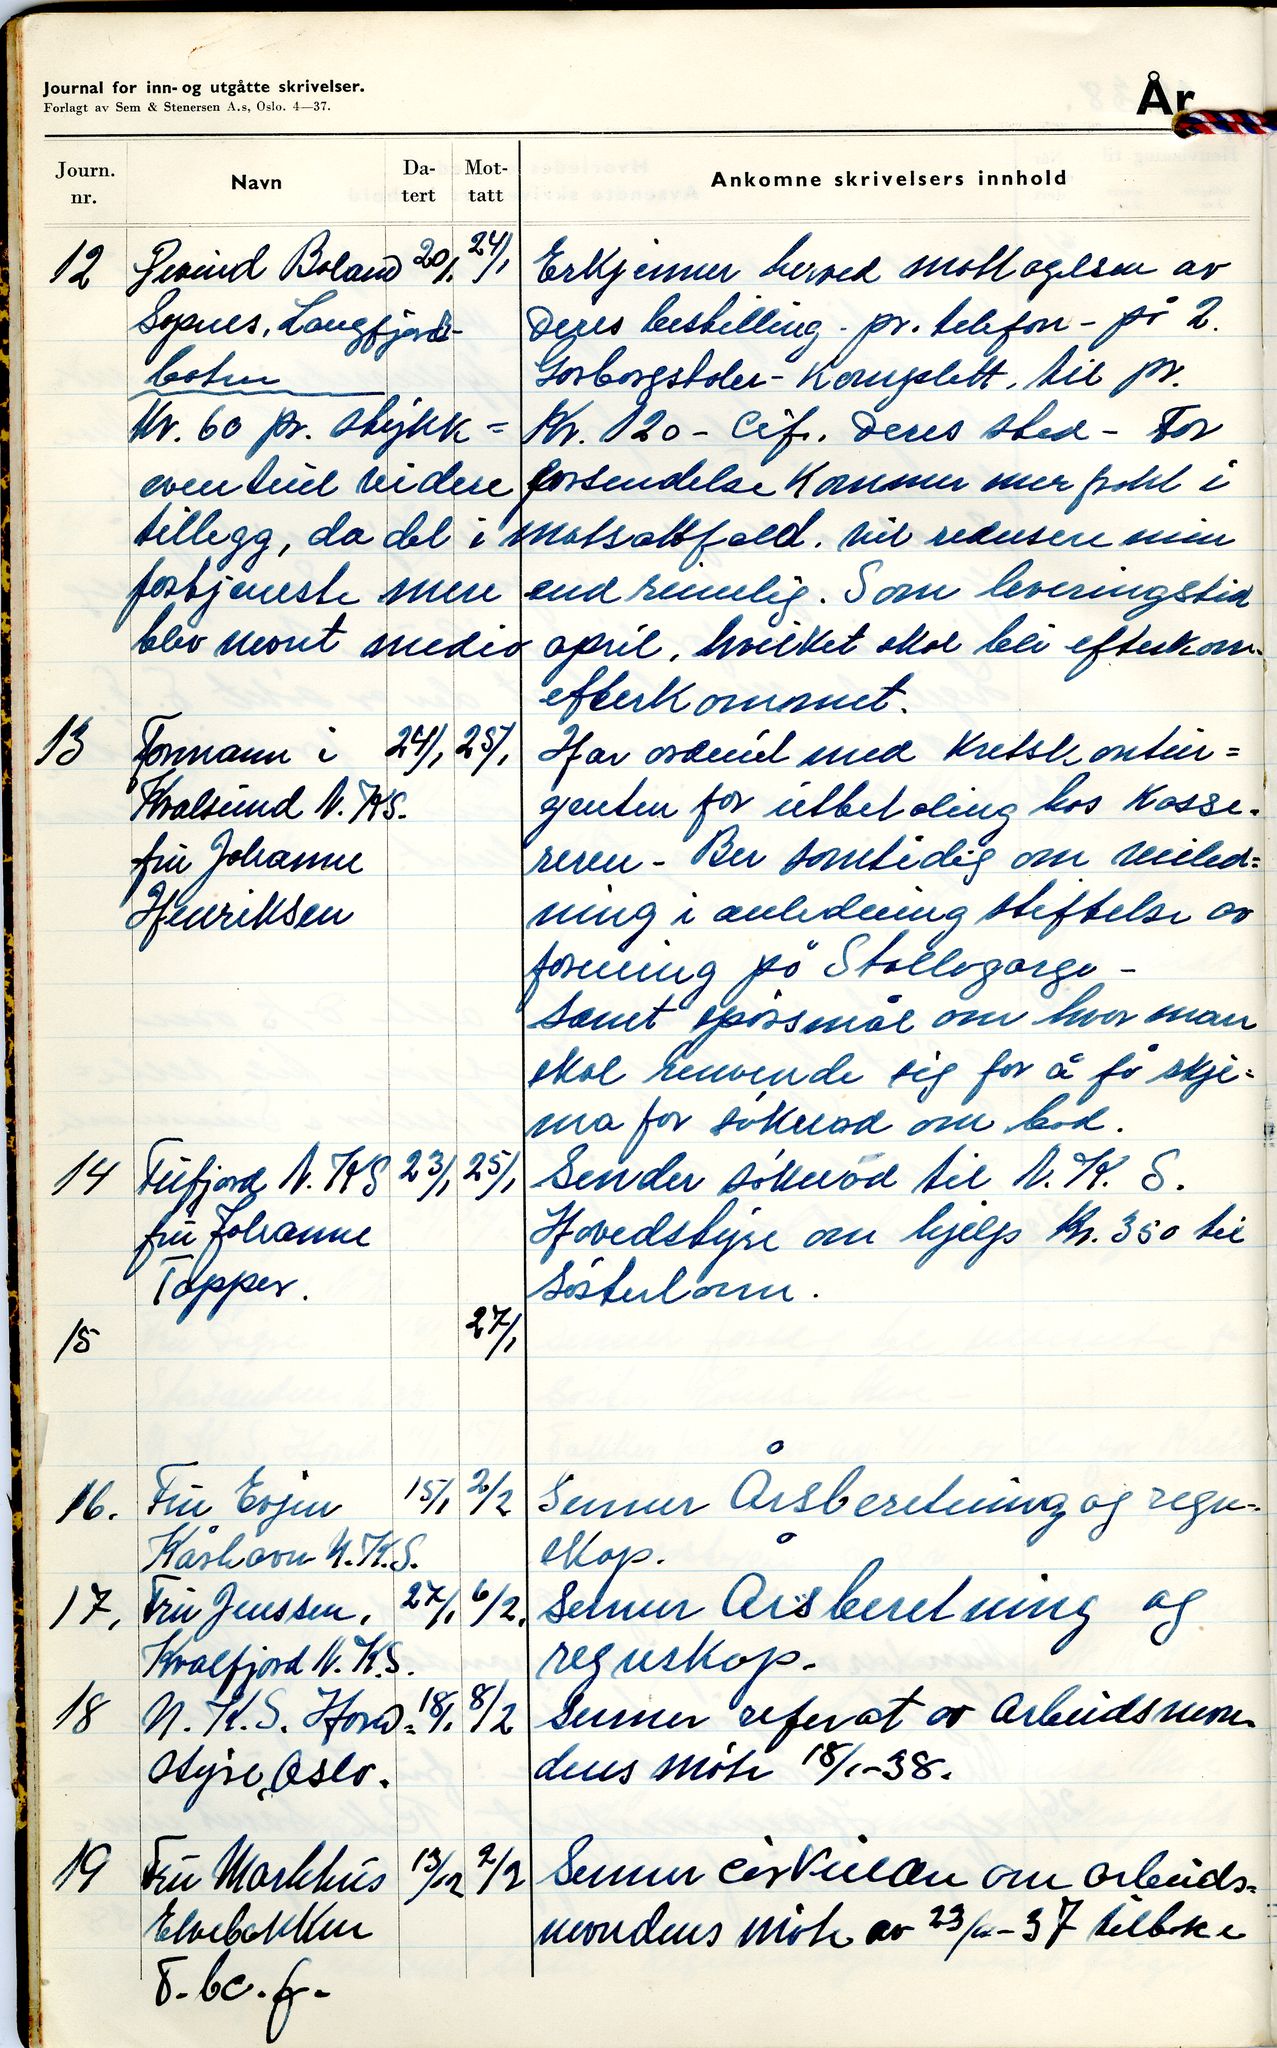 Journal for inn- og utgåtte skrivelser.
Forlagt av Sem & Stenersen A.s, Oslo. 4—37.
År
Journ. nr.
Navn
Da-tert
Mot-tatt
Ankomne skrivelsers innhold
12 Eivind Boland 20/1 24/1 Erkjenner herved mottagelsen av
Sopnes, Langfjord- Deres bestilling - pr. telefon - på 2.
botn - Komplett, til pr.
Kr. 60 pr. stykk = Kr. 120 - Cif. Deres sted - For
eventuel videre forsendelse kommer mer frakt i
tillegg, da det i motsattfald. vil redusere min
fortjeneste mere end rimelig. Som leveringstid
blev nevnt medio april, hvilket skal bli efterkom-
efterkommet.
13 Formann i 24/1, 25/1, Har ordnet med Kretskontin=
Kvalsund N. KS. genten for utbetaling hos Kasse-
fru Johanne reren - Ber samtidig om veiled=
Henriksen ning i anledning stiftelse av
forening på Stallogargo -
samt spørsmål om hvor man
skal henvende sig for å få skje=
ma for søknad om bad.
14 Tufjord N. KS 23/1, 25/1, Sender søknad til N. K. S.
fru Johanne Hovedstyre om hjelp Kr. 350 til
Topper. Søsterlønn.
15 27/1
16. Fru Evjen 15/1 2/2 Senner Årsberetning og regn-
Kåshavn N.K.S. skap.
17, Fru Jenssen, 27/1 6/2, Senner Årsberetning og
Kvalfjord N. K.S. regnskap.
18 N. K. S. Hoved= 18/1 8/2 Senner referat av Arbeidsnevn-
styre, Oslo. dens møte 18/1-38.
19 Fru Markhus 13/12 2/2 Senner cirkulære om arbeids=
Elvebakken nevndens møte av 23/11-37 tilbake
T. bc. f.